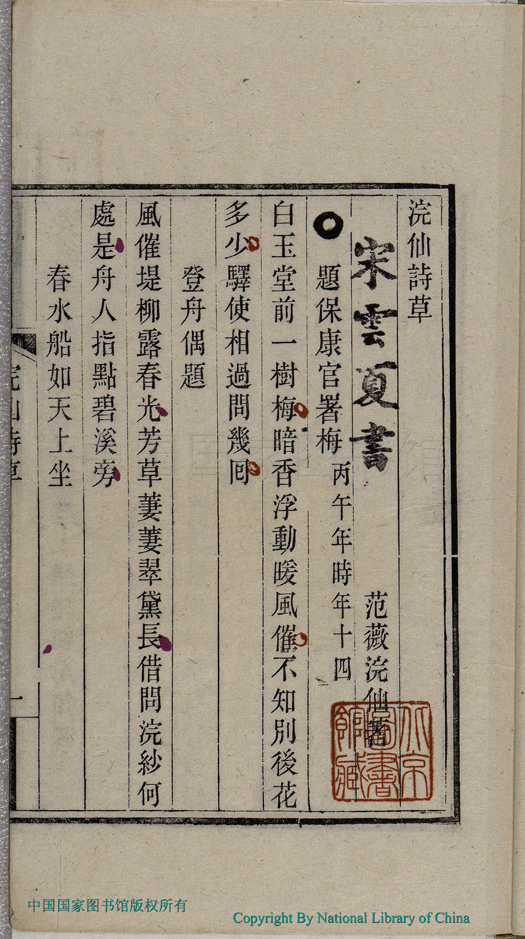 浣仙詩草
宋雲夏書
范薇浣仙著
題保康官署梅 丙午年時年十四
白玉堂前一樹梅暗香浮動暖風催不知別後花
多少驛使相過問幾回
登舟偶題
風催堤柳露春光芳草萋萋翠黛長借問浣紗何
處是舟人指點碧溪旁
春水船如天上坐
浣仙詩草
一
中国国家图书馆版权所有
Copyright By National Library of China